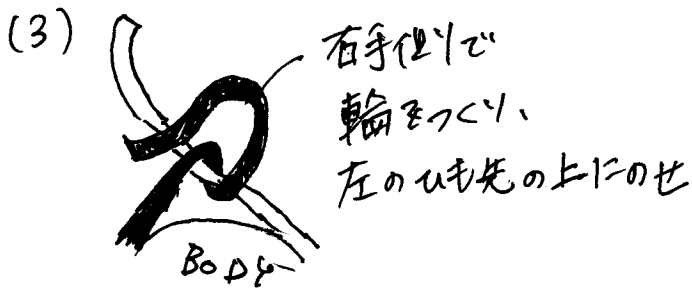 (3)
右手側で
輪をつくり、
左のひも先の上にのせ
BODY